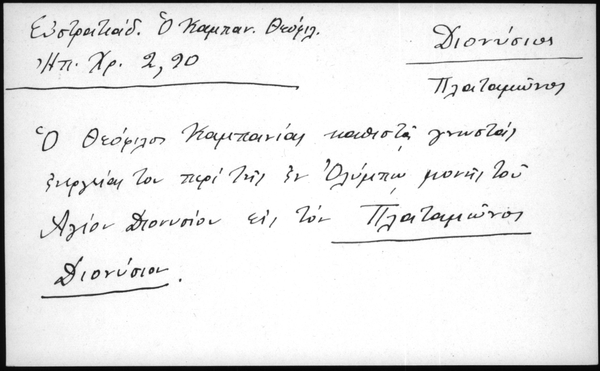 Εὐστρατιάδ. Ὁ Καμπαν. Θεόφιλ.
Ἠπ. Χρ. 2, 90
Διονύσιος
Πλαταμῶνος
Ὁ Θεόφιλος Καμπανίας καθιστᾷ γνωστάς
ἐνεργείας του περί τῆς ἐν Ὀλύμπῳ μονῆς τοῦ
Ἁγίου Διονυσίου εἰς τόν Πλαταμῶνος
Διονύσιον.